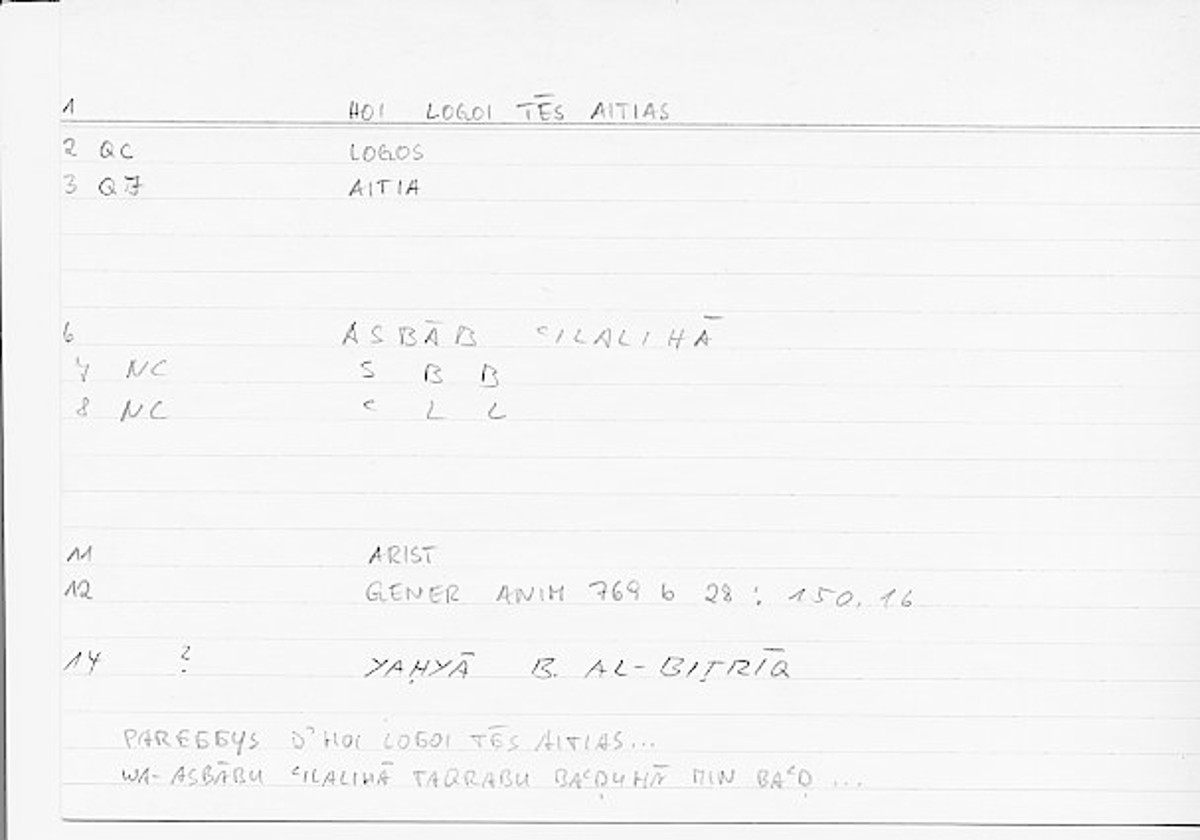 1 HOI LOGOI TĒS AITIAS
2 QC LOGOS
3 Q7 AITIA
6 ASBĀB ʿILALIHĀ
7 NC S B B
8 NC ʿ L L
11 ARIST
12 GENER ANIM 769 b 28 : 150, 16
14 ? YAḤYĀ B. AL-BIṬRĪQ
PAREGGYS D' HOI LOGOI TĒS AITIAS...
WA- ASBĀBU ʿILALIHĀ TAQRABU BAʿḌUHĀ MIN BAʿḌ ...